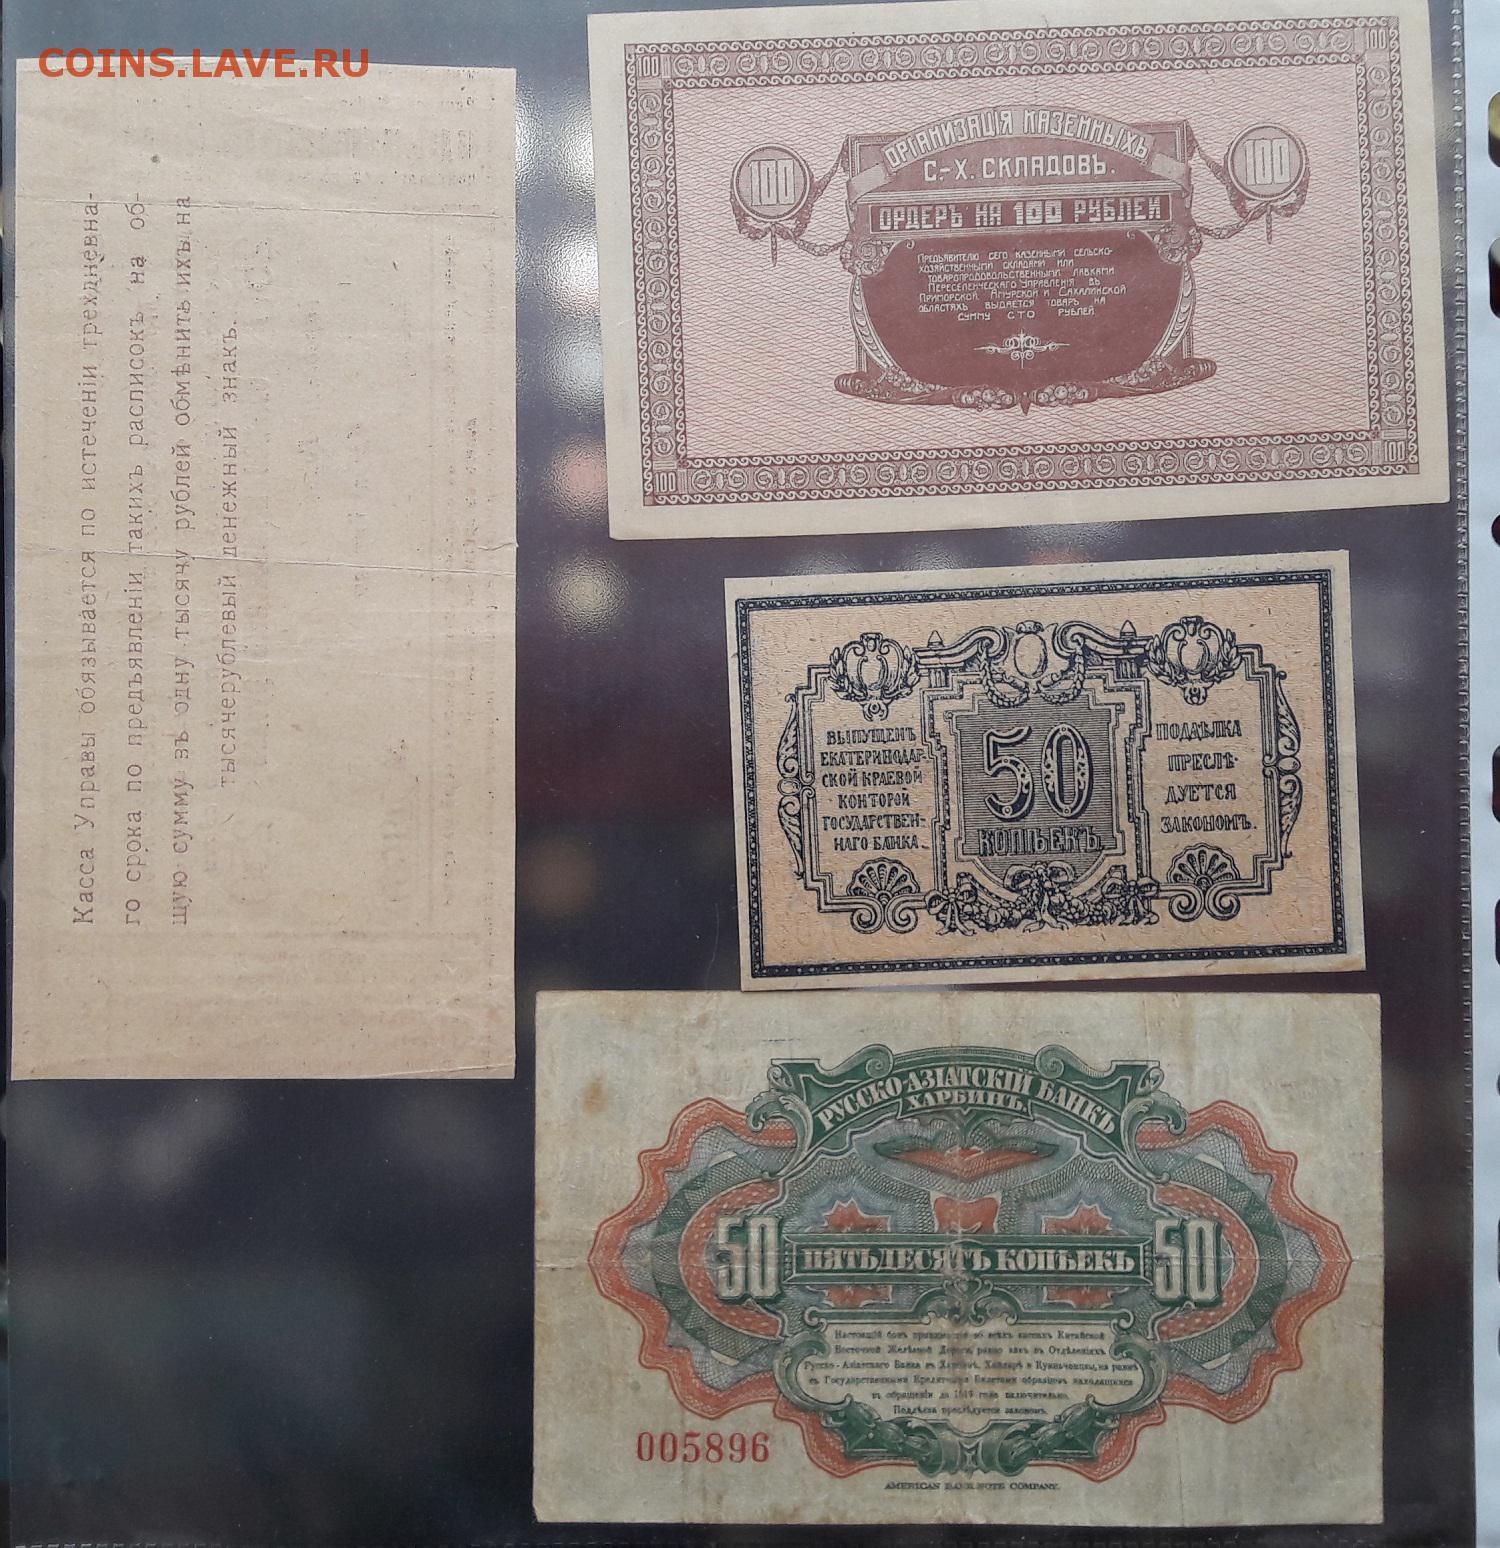 COINS.LAVE.RU
Касса Управы обязывается по истеченіи трехдневна-
го срока по предъявленіи такихъ расписокъ на об-
щую сумму въ одну тысячу рублей обмѣнить ихъ на
тысячерублевый денежный знакъ.
100 100
ОРГАНИЗАЦІЯ КАЗЕННЫХЪ
С.-Х. СКЛАДОВЪ.
100 100
ОРДЕРЪ НА 100 РУБЛЕЙ
Предъявителю сего казенными сельско-
хозяйственными складами или
товаропродовольственными лавками
Переселенческаго Управленія въ
Приморской, Амурской и Сахалинской
областяхъ выдается товаръ на
сумму сто рублей
100 100
ВЫПУЩЕНЪ
ЕКАТЕРИНОДАР-
СКОЙ КРАЕВОЙ
КОНТОРОЙ
ГОСУДАРСТВЕН-
НАГО БАНКА.
50
КОПѢЕКЪ
ПОДДѢЛКА
ПРЕСЛѢ-
ДУЕТСЯ
ЗАКОНОМЪ.
РУССКО-АЗІАТСКІЙ БАНКЪ
ХАРБИНЪ.
50 ПЯТЬДЕСЯТЪ КОПѢЕКЪ 50
Настоящій бонъ принимается во всѣхъ кассахъ Китайской
Восточной Желѣзной Дороги, равно какъ въ Отдѣленіяхъ
Русско-Азіатскаго Банка въ Харбинѣ, Хайларѣ и Куаньчэнцзы, на равнѣ
съ Государственными Кредитными Билетами образцовъ находящихся
въ обращеніи до 1917 года включительно.
Поддѣлка преслѣдуется закономъ.
005896
AMERICAN BANK NOTE COMPANY.